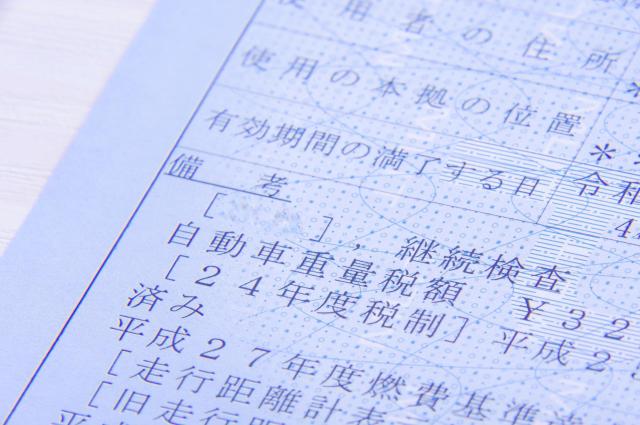 使用者の住所
使用の本拠の位置
有効期間の満了する日 令和
備考
[ ], 継続検査
自動車重量税額 ￥32
[24年度税制] 平成2
済み
平成27年度燃費基準達
[走行距離計表
[旧走行距
平成